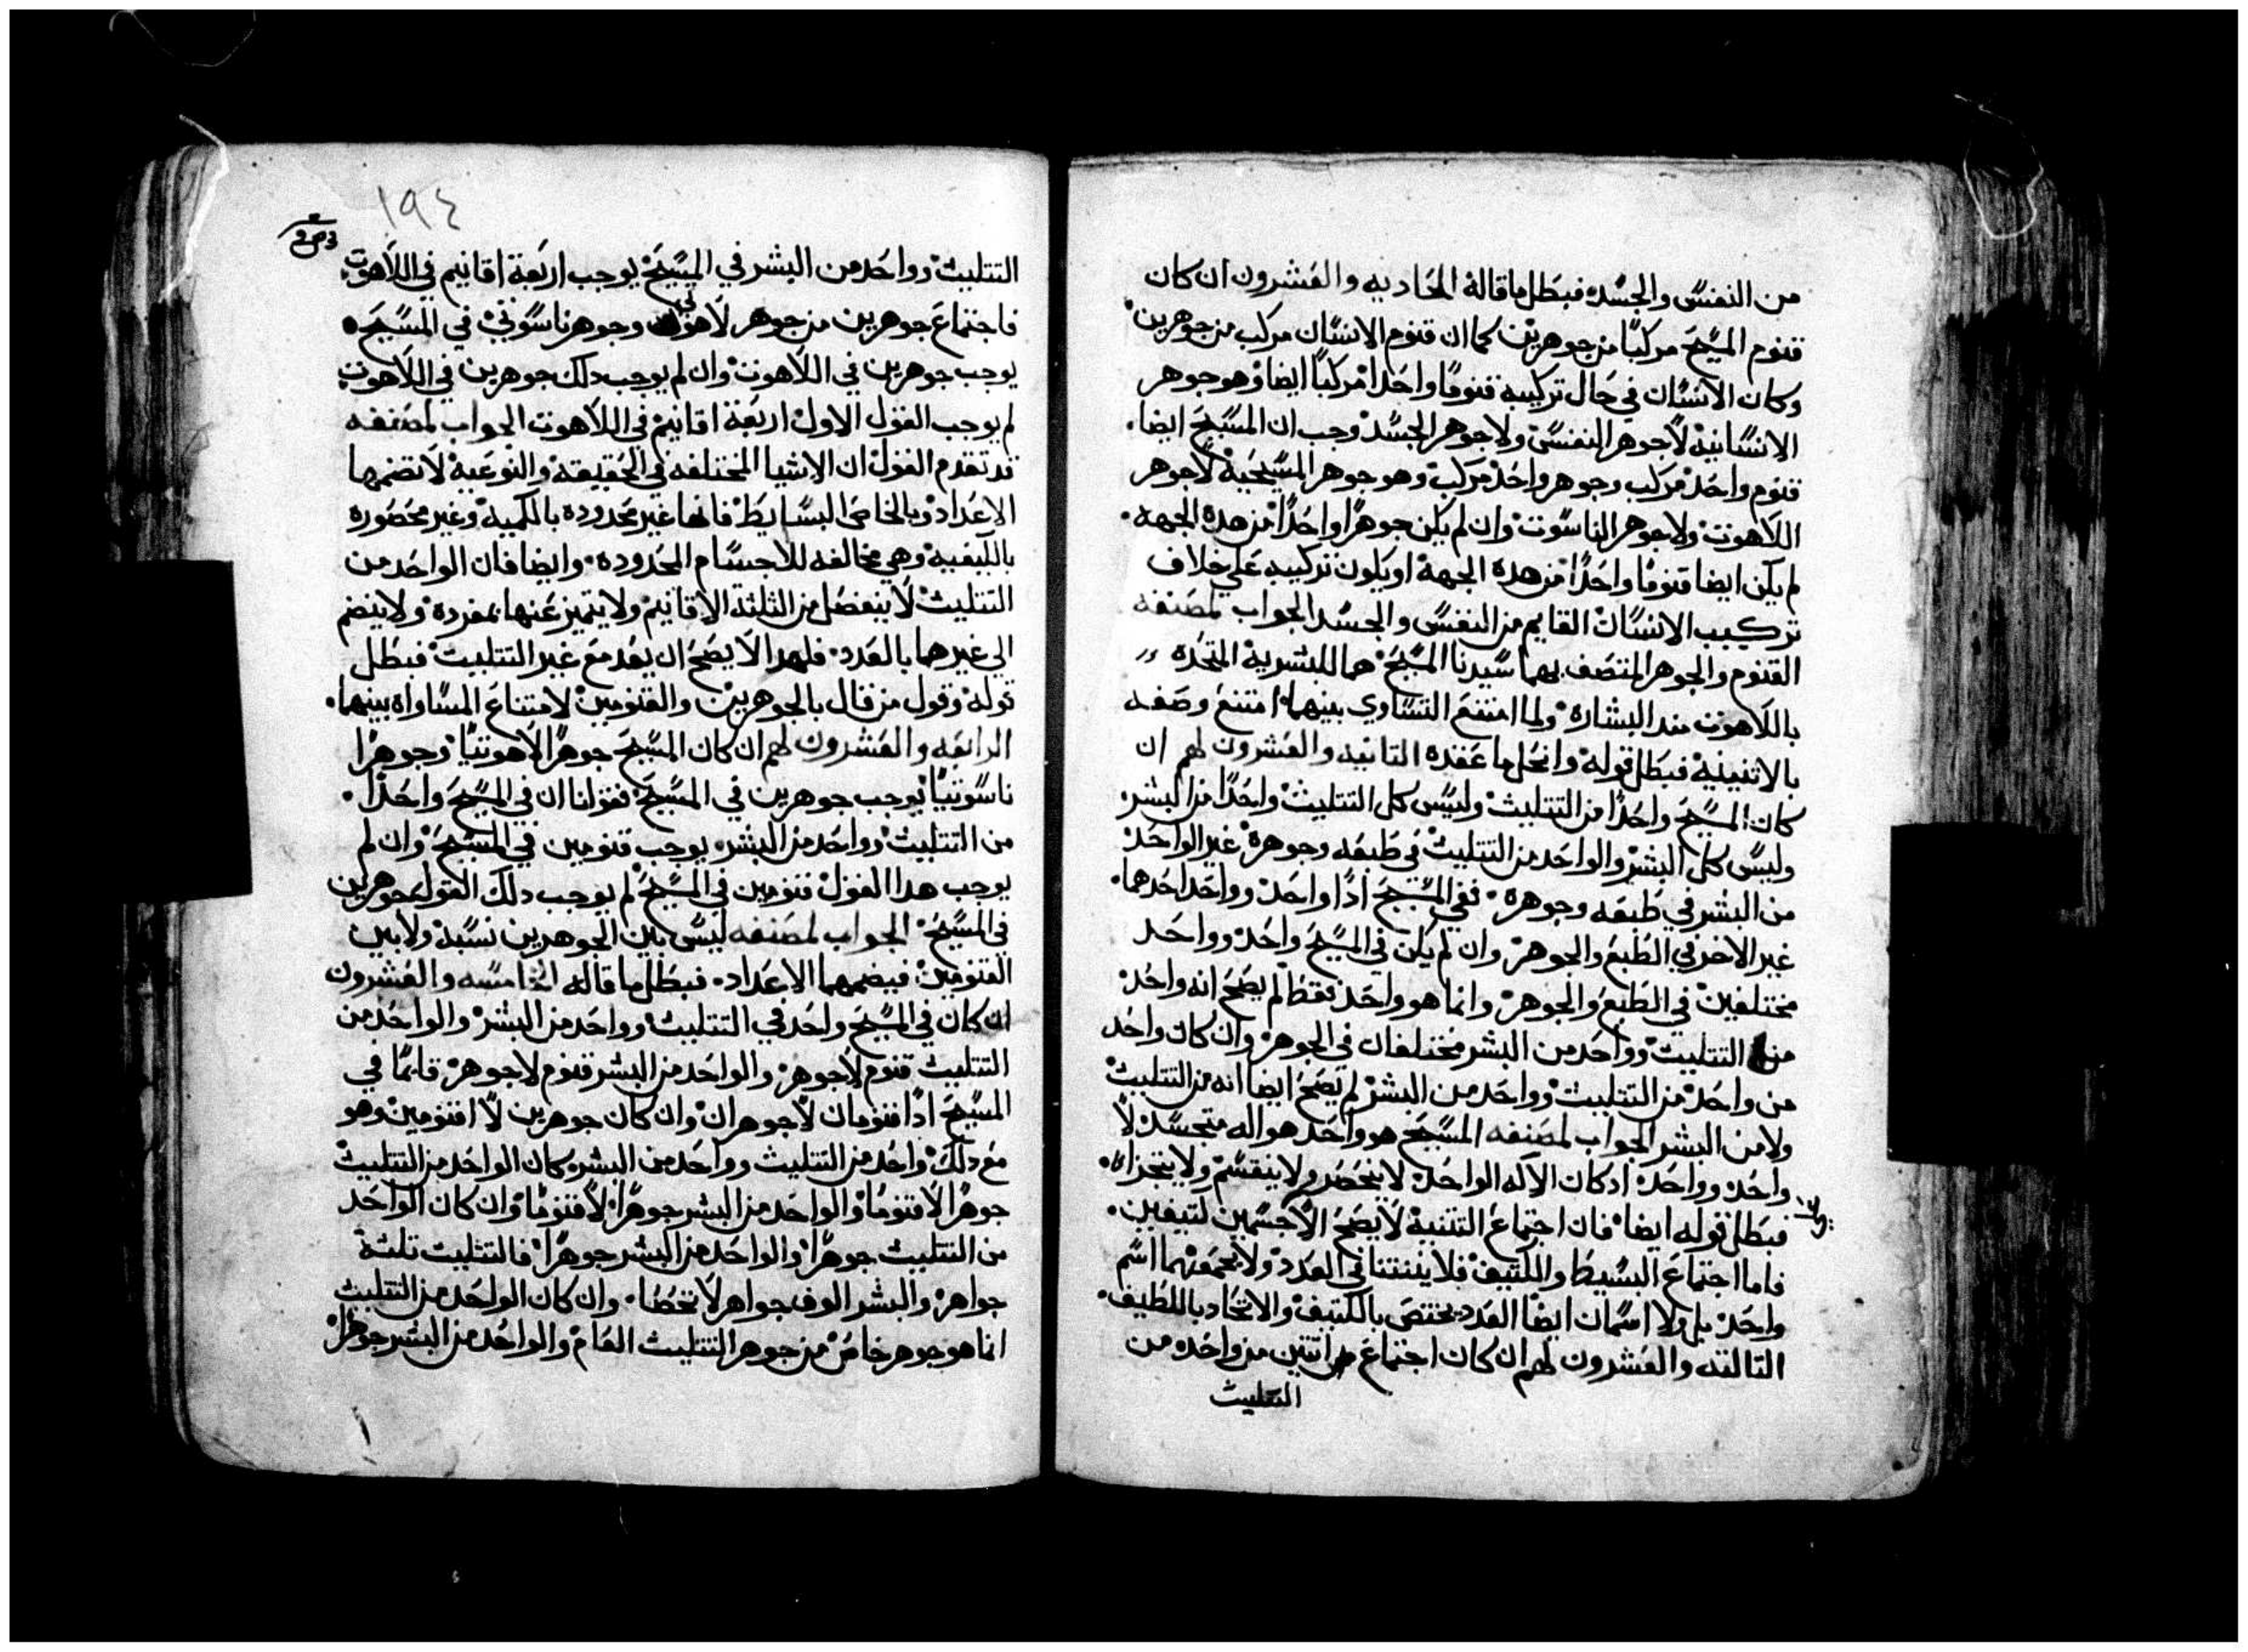 من النفس والجسد فبطل ما قاله الحاديه والعشرون ان كان
قنوم المسيح مركبًا من جوهرين كما ان قنوم الانسان مركب من جوهرين
وكان الانسان في حال تركيبه قنومًا واحدًا مركبًا ايضا وهو جوهر
الانسانيه لا جوهر النفس ولا جوهر الجسد وجب ان المسيح ايضا
قنوم واحد مركب وجوهر واحد مركب وهو جوهر المسيحيه لا جوهر
اللاهوت ولا جوهر الناسوت وان لم يكن جوهرًا واحدًا من هده الجهه
لم يكن ايضا قنومًا واحدًا من هده الجهة او يكون تركيبه علي خلاف
تركيب الانسان القايم من النفس والجسد الجواب لمصنفه
القنوم والجوهر المتصف بهما سيدنا المسيح هما للبشرية المتحده
باللاهوت مند البشاره ولما امتنع التساوي بينهما امتنع وصفه
بالاتنينية فبطل قوله وانحل ما عقده التانيه والعشرون لهم ان
كان المسيح واحدًا من التتليت وليس كل التتليت واحدًا من البشر
وليس كل البشر والواحد من التتليت في طبعه وجوهرة غير الواحد
من البشر في طبعه وجوهرة ففي المسيح ادًا واحد وواحد احدهما
غير الاخر في الطبع والجوهر وان لم يكن في المسيح واحد وواحد
مختلفين في الطبع والجوهر وانما هو واحد فقط لم يصح انه واحد
من التتليت وواحد من البشر مختلفان في الجوهر وان كان واحد
من واحد من التتليت وواحد من البشر لم يصح ايضا انه من التتليت
ولا من البشر الجواب لمصنفه المسيح هو واحد هو اله متجسد لا
واحد وواحد ادكان الاله الواحد لا ينحصر ولا ينقسم ولا يتجزا
فبطل قوله ايضا فان اجتماع التتنية لا يصح الا لجسمين لتيفين
فاما اجتماع البسيط والكتيف فلا يتنتنا في العدد ولا يجمعهما اسم
واحد بل ولا اسمان ايضا العدد يختص بالكتيف والاتحاد باللطيف
التالته والعشرون لهم ان كان اجتماع اتنين من واحده من
التتليت
١٩٤
التتليت وواحد من البشر في المسيح يوجب اربعة اقانيم في اللاهوت
فاجتماع جوهرين من جوهر لاهوتي وجوهر ناسوتي في المسيح
يوجب جوهرين في اللاهوت وان لم يوجب دلك جوهرين في اللاهوت
لم يوجب القول الاول اربعة اقانيم في اللاهوت الجواب لمصنفه
قد تقدم القول ان الاشيا المختلفه في الحقيقه والنوعية لا تضمها
الاعداد وبالخاصه البسايط فانها غير محدوده بالكمية وغير محصوره
بالكيفيه وهي مخالفه للاجسام المحدوده وايضا فان الواحد من
التتليت لا ينفصل من التلتة الاقانيم ولا يتميز عنها بمفرده ولا ينضم
الي غيرهما بالعدد فلهدا لا يصح ان يعد مع غير التتليت فبطل
قوله وقول من قال بالجوهرين والقنومين لامتناع المساواه بينهما
الرابعه والعشرون لهم ان كان المسيح جوهرًا لاهوتيًا وجوهرًا
ناسوتيًا يوجب جوهرين في المسيح فقولنا ان في المسيح واحدًا
من التتليت وواحد من البشر يوجب قنومين في المسيح وان لم
يوجب هدا القول قنومين في المسيح لم يوجب دلك القول جوهرين
في المسيح الجواب لمصنفه ليس بين الجوهرين نسبة ولا بين
القنومين فيضمهما الاعداد فبطل ما قاله الخامسه والعشرون
ان كان في المسيح واحد في التتليت وواحد من البشر والواحد من
التتليت قنوم لا جوهر والواحد من البشر قنوم لا جوهر قايمًا في
المسيح ادًا قنومان لا جوهران وان كان جوهرين لا اقنومين وهو
مع دلك واحد من التتليت وواحد من البشر كان الواحد من التتليت
جوهرًا لا قنومًا والواحد من البشر جوهرًا لا قنومًا وان كان الواحد
من التتليت جوهرًا والواحد من البشر جوهرًا فالتتليت تلتة
جواهر والبشر الوف جواهر لا تحصا وان كان الواحد من التتليت
انما هو جوهر خاص من جوهر التتليت العام والواحد من البشر جوهرًا